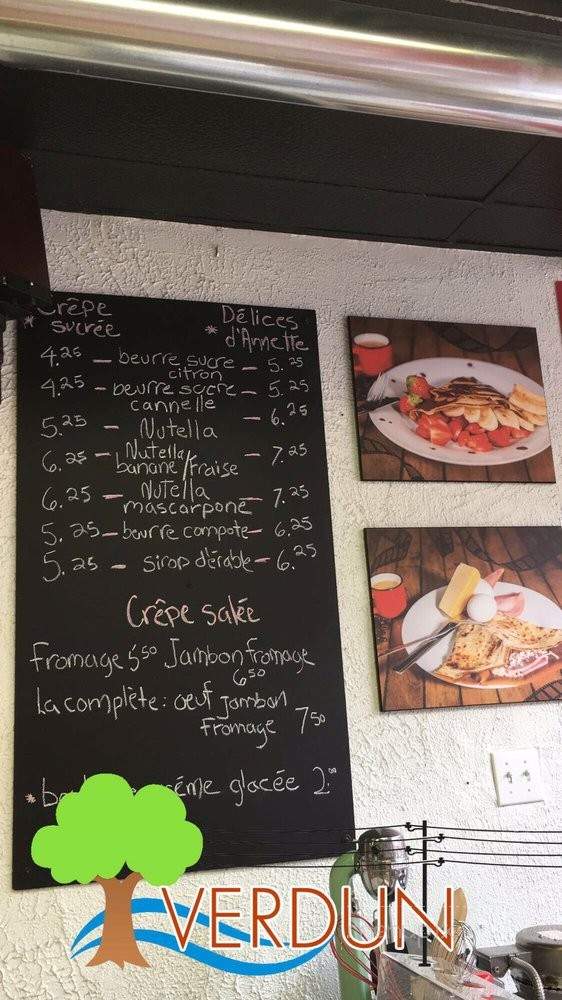 * Crêpe sucrée
* Délices d'Annette
4.25 — beurre sucre citron — 5.25
4.25 — beurre sucre cannelle — 5.25
5.25 — Nutella — 6.25
6.25 — Nutella banane/fraise — 7.25
6.25 — Nutella mascarpone — 7.25
5.25 — beurre compote — 6.25
5.25 — sirop d'érable — 6.25
Crêpe salée
fromage 5.50 Jambon fromage
6.50
La complète: oeuf jambon
fromage 7.50
* glacée 2.00
VERDUN